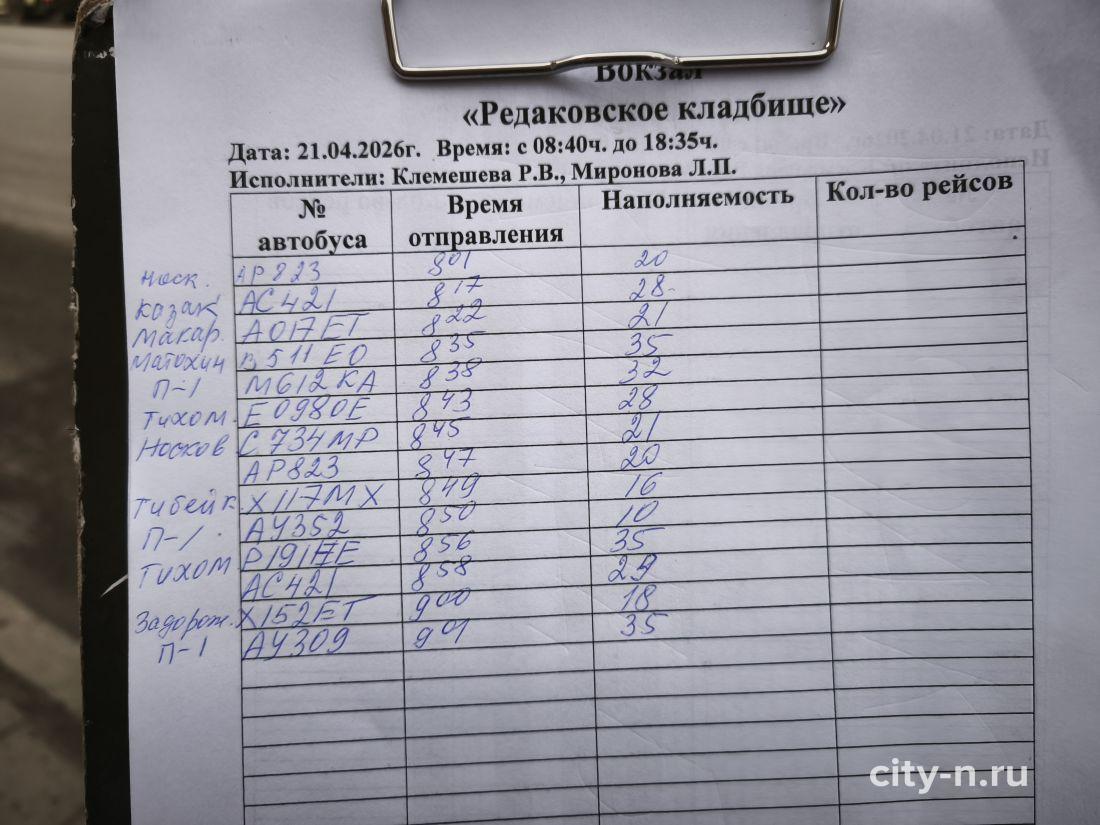 Вокзал
«Редаковское кладбище»
Дата: 21.04.2026г. Время: с 08:40ч. до 18:35ч.
Исполнители: Клемешева Р.В., Миронова Л.П.
№ автобуса Время отправления Наполняемость Кол-во рейсов
Носк. АР823 8 01 20
Казак АС421 8 17 28
Макар. А017ЕТ 8 22 21
Матохин В511ЕО 8 35 35
П-1 М612КА 8 38 32
Тихом. Е098ОЕ 8 43 28
Носков С734МР 8 45 21
АР823 8 47 20
Тибейк. Х117МХ 8 49 16
П-1 АУ352 8 50 10
Тихом Р191 Е 8 56 35
АС421 8 58 29
Задорож. Х152ЕТ 9 00 18
П-1 АУ309 9 01 35
city-n.ru